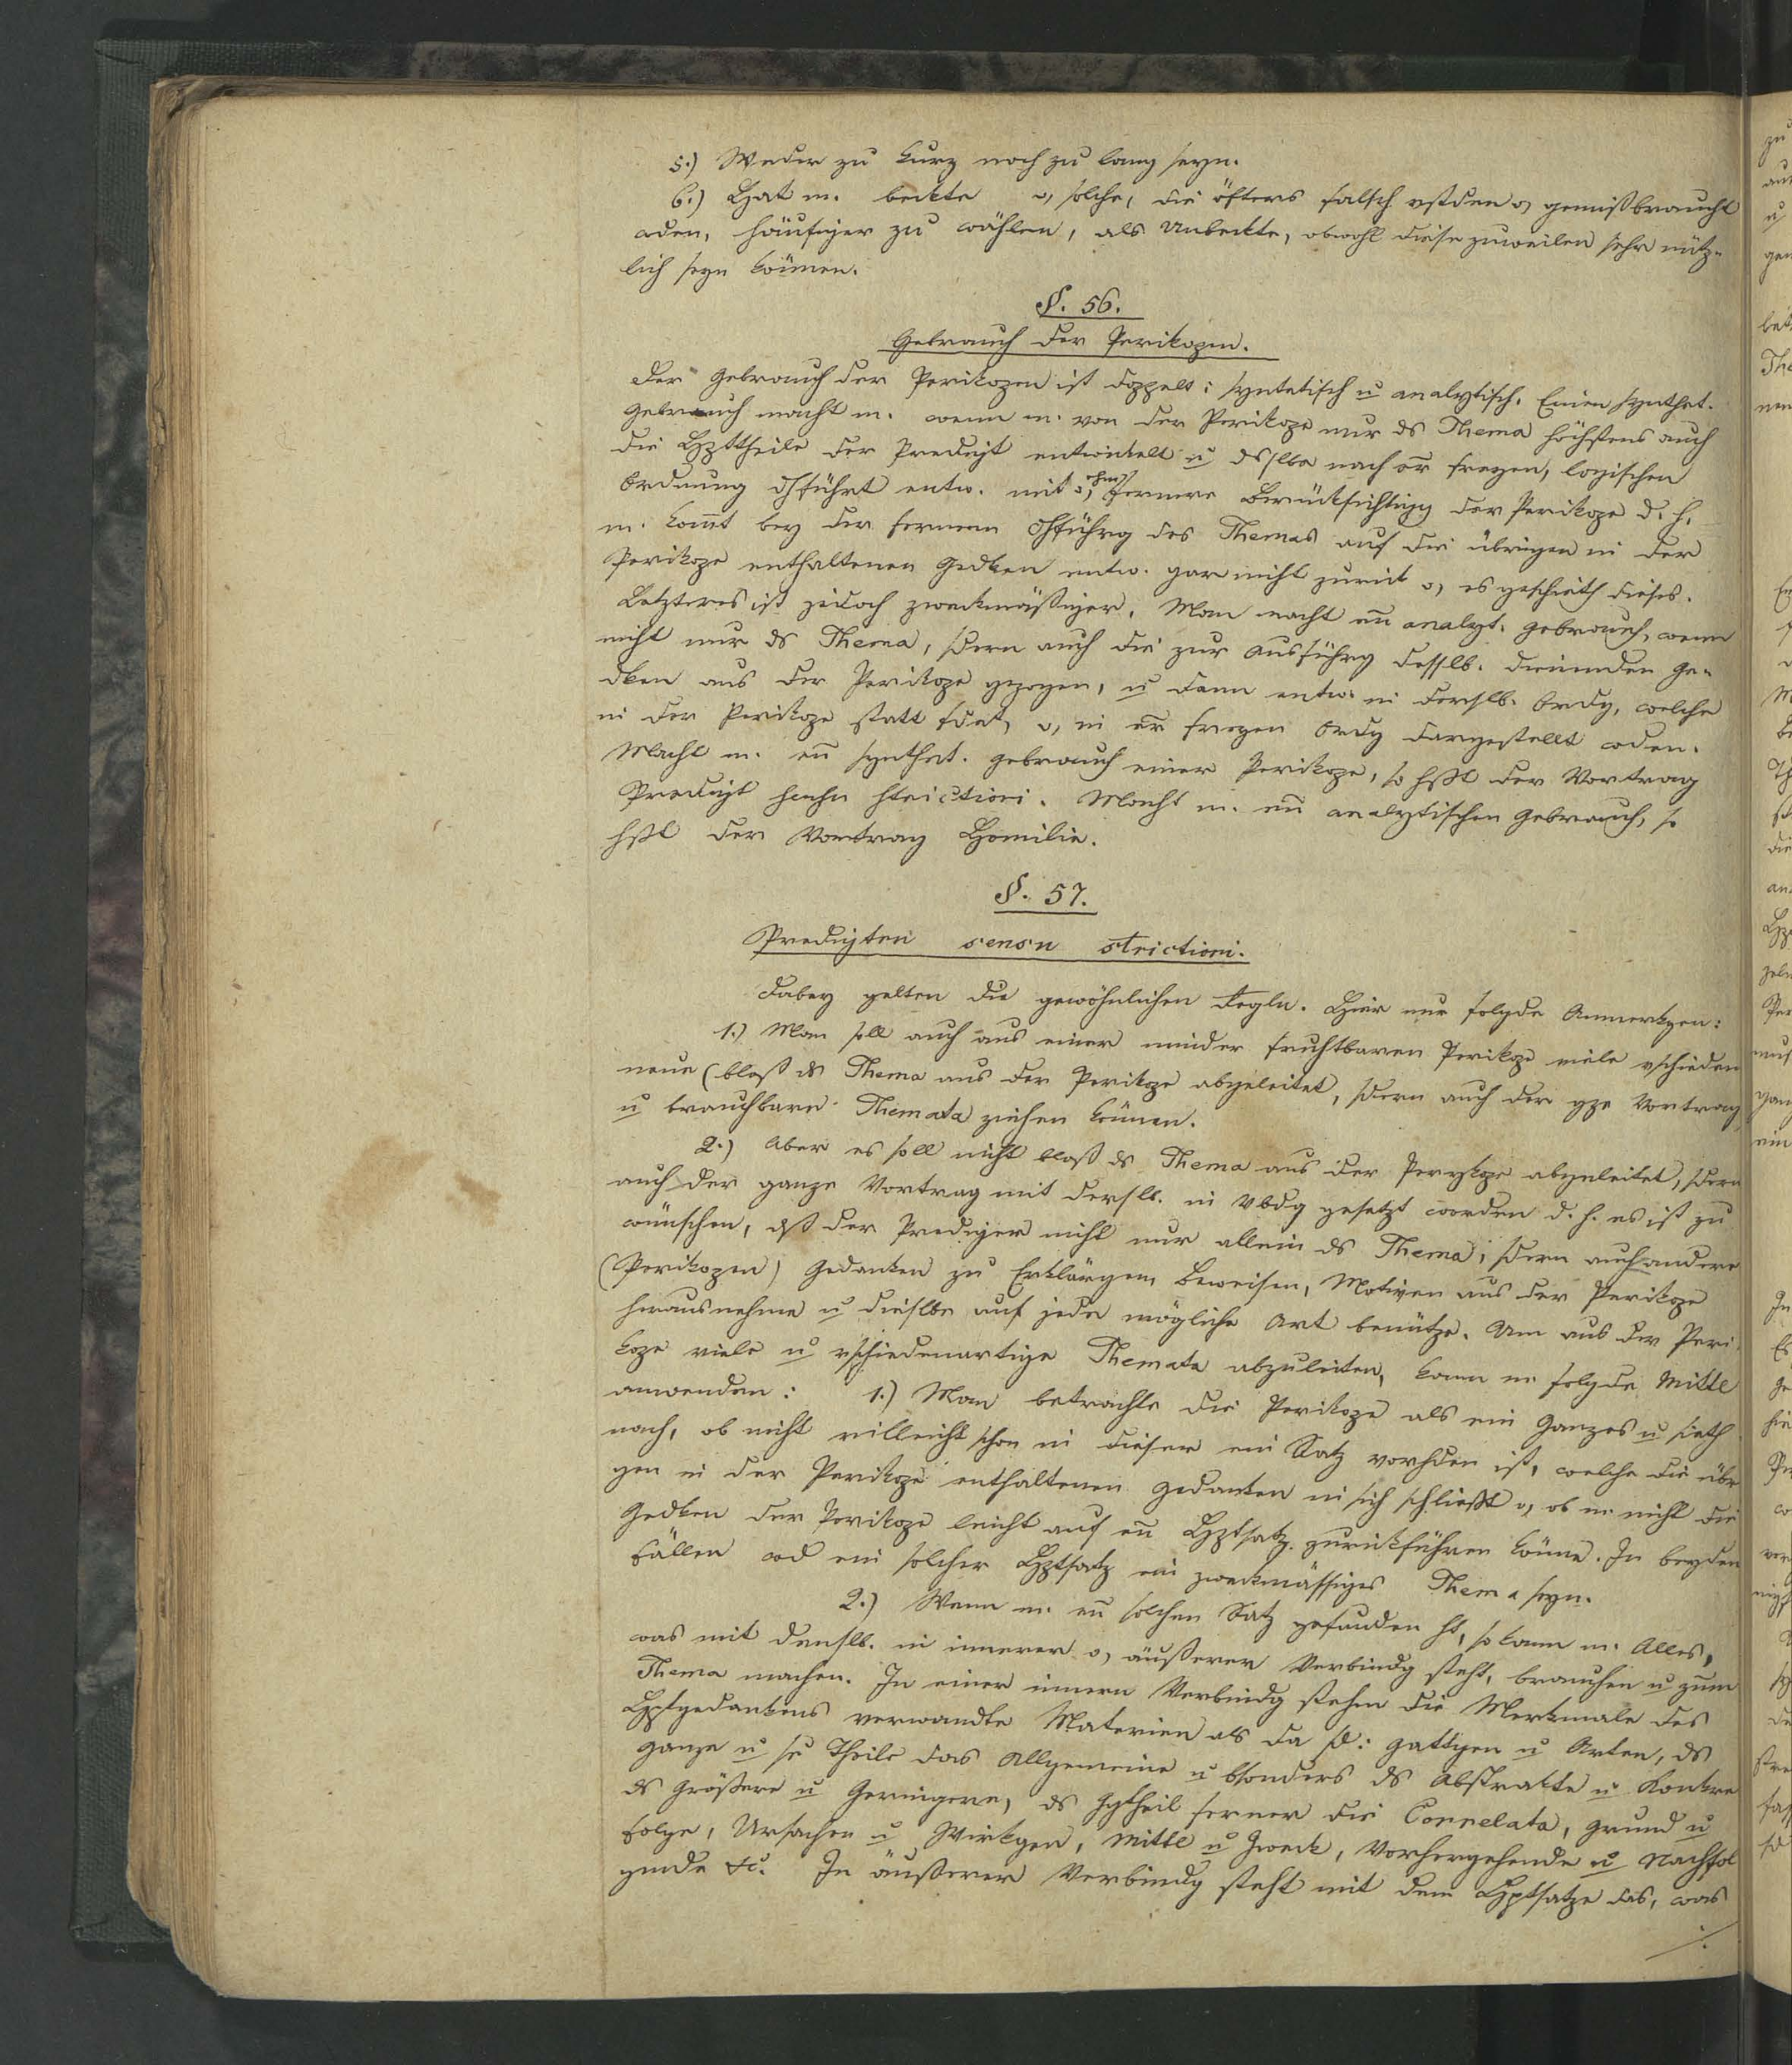 5.) Weder zu kurz noch zu lang seyn.
6.) Hat m. bekte o, solche, die öfters falsch vstden o, gemißbraucht
wden, häufiger zu wählen, als Unbekte, obwohl diese zuweilen sehr nütz-
lich seyn können.
§. 56.
Gebrauch der Perikopen.
Der Gebrauch der Perikopen ist doppelt: syntetisch u analytisch. Einen synthet.
Gebrauch macht m. wenn m. von der Perikope nur ds Thema höchstens auch
die Hpttheile der Predigt entwikelt u dsslbe nach er freyen, logischen
Ordnung dhführt entw. mit o, ohne fernere Berüksichtigg der Perikope d. h.
m. komt bey der fernern dhführg des Themas auf die übrigen in der
Perikope enthaltenen Gedken entw. gar nicht zurük o, es geschieth dieses.
Letzteres ist jedoch zwekmäßiger. Man macht en analyt. Gebrauch, wenn
nicht nur ds Thema, sdern auch die zur Ausführg desslb. dienenden Ge-
dken aus der Perikope gezogen, u dann entw. in derslb. Ordg, welche
in der Perikope statt fdet, o, in er freyen Ordg dargestellt wden.
Macht m. en synthet. Gebrauch einer Perikope, so hßt der Vortrag
Predigt strictiori. Macht m. en analytischen Gebrauch, so
hßt der Vortrag Homilie.
§. 57.
Predigten sensu strictiori.
Dabey gelten die gewöhnlichen Regln. Hier nur folgde Anmerkgen:
1.) Man soll auch aus einer minder fruchtbaren Perikope viele vschieden
neue (bloß ds Thema aus der Perikope abgeleitet, sdern auch der gze Vortrag
u brauchbare Themata ziehen können.
2.) Aber es soll nicht bloß ds Thema aus der Perykope abgeleitet, sdern
auch der ganze Vortrag mit derslb. in Vbdg gesetzt werden d. h. es ist zu
wünschen, dß der Prediger nicht nur allein ds Thema, sdern auch andere
(Perikopen) Gedanken zu Erklärgen, Beweisen, Motiven aus der Perikope
herausnehme u dieslbe auf jede mögliche Art benütze. Um aus der Peri-
kope viele u vschiedenartige Themata abzuleiten, kann m folgde Mittl
anwenden: 1.) Man betrachte die Perikope als ein Ganzes u sieth
nach, ob nicht villeicht schon in dieser ein Satz vorhden ist, welche die übr
gen in der Perikope enthaltenen Gedanken in sich schließt o, ob m nicht die
Gedken der Perikope leicht auf en Hptsatz zurükführen könne. In beyden
Fällen wd ein solcher Hptsatz ein zwekmässiges Thema seyn.
2.) Wenn m. en solchen Satz gefunden ht, so kann m. Alles,
was mit denslb. in innerer o, äußerer Verbindg steht, brauchen u zum
Thema machen. In einer innern Verbindg stehen die Merkmale des
Hptgedankens verwandte Materien als da sd: Gattgen u Arten, ds
Ganze u se Theile das Allgemeine u bsonders ds Abstrakte u Konkre
ds Größere u Geringere, ds Ggtheil ferner die Correlata, Grund u
Folge, Ursachen u Wirkgen, Mittl u Zwek, Vorhergehende u Nachfol
gende &c. In äußerer Verbindg steht mit dem Hptsatze das, was
./.